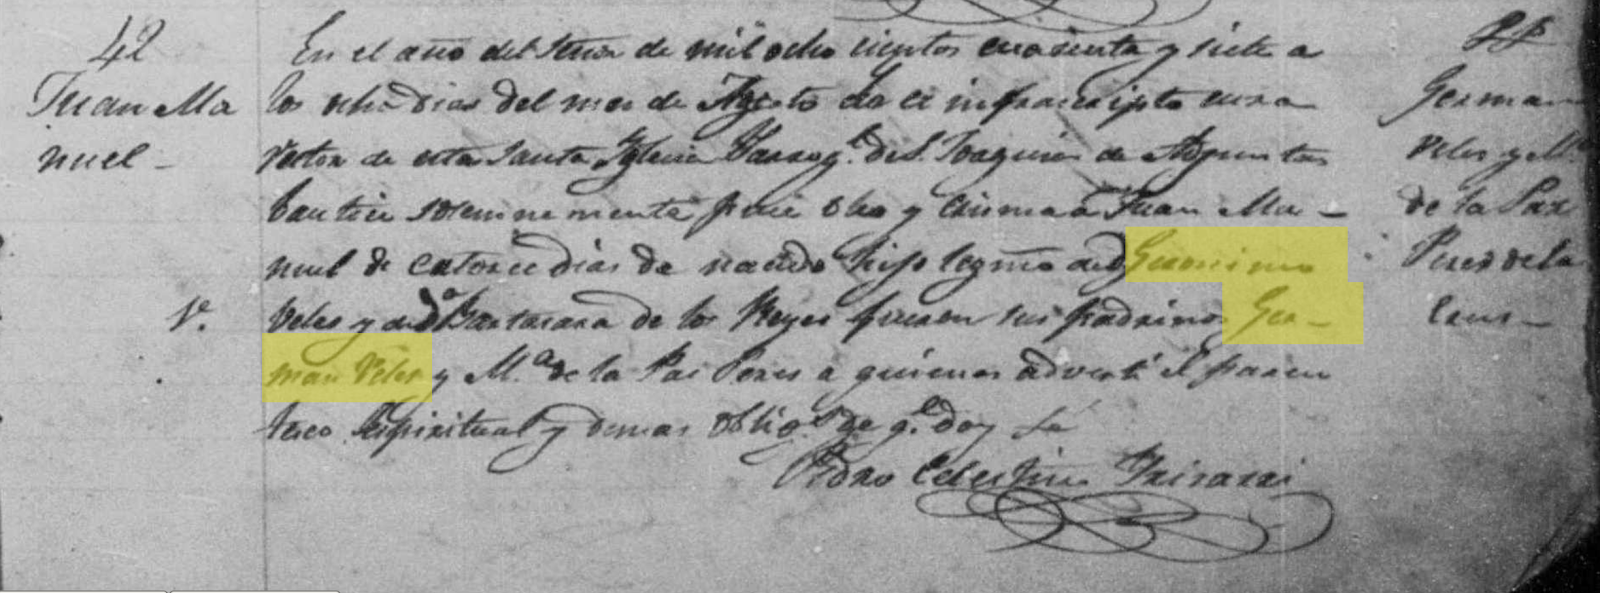 42
Juan Ma
nuel -
V.
En el año del Señor de mil ocho cientos cuarenta y siete a
los ocho dias del mes de Agosto Yo el infraescripto cura
rector de esta Santa Yglecia Parroq.l de S. Joaquin de
bautice solemnemente puse oleo y crisma à Juan Ma -
nuel de catorce dias de nacido hijo legmo de D Geronimo
Veles y de Da Bartarara de los Reyes fueron sus padrinos Ger -
man Veles y M.a de la Pas Peres à quienes adverti el paren
tesco Espiritual y demas obligs de q.e doy fé
Pedro Celestino Yrisarri
PP
German
Veles y M.a
de la Pax
Peres de la
Crus -